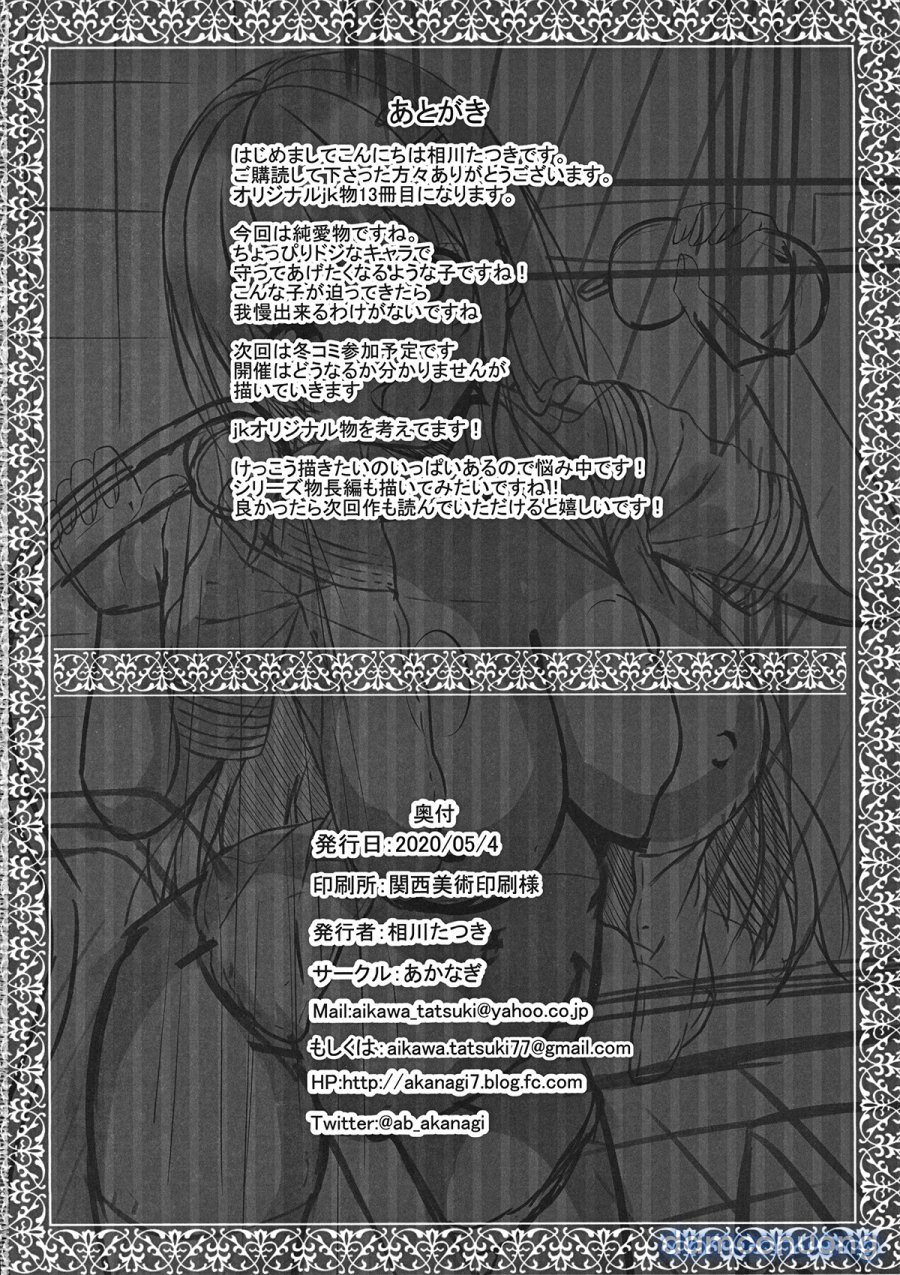 あとがき
はじめましてこんにちは相川たつきです。
ご購読して下さった方々ありがとうございます。
オリジナルjk物13冊目になります。
今回は純愛物ですね。
ちょっぴりドジなキャラで
守ってあげたくなるような子ですね！
こんな子が迫ってきたら
我慢出来るわけがないですね
次回は冬コミ参加予定です
開催はどうなるか分かりませんが
描いていきます
jkオリジナル物を考えてます！
けっこう描きたいのいっぱいあるので悩み中です！
シリーズ物長編も描いてみたいですね)!!
良かったら次回作も読んでいただけると嬉しいです！
奥付
発行日：2020/05/4
印刷所：関西美術印刷様
発行者：相川たつき
サークル：あかなぎ
Mail:aikawa_tatsuki@yahoo.co.jp
もしくは：aikawa.tatsuki77@gmail.com
HP:http://akanagi7.blog.fc.com
Twitter:@ab_akanagi